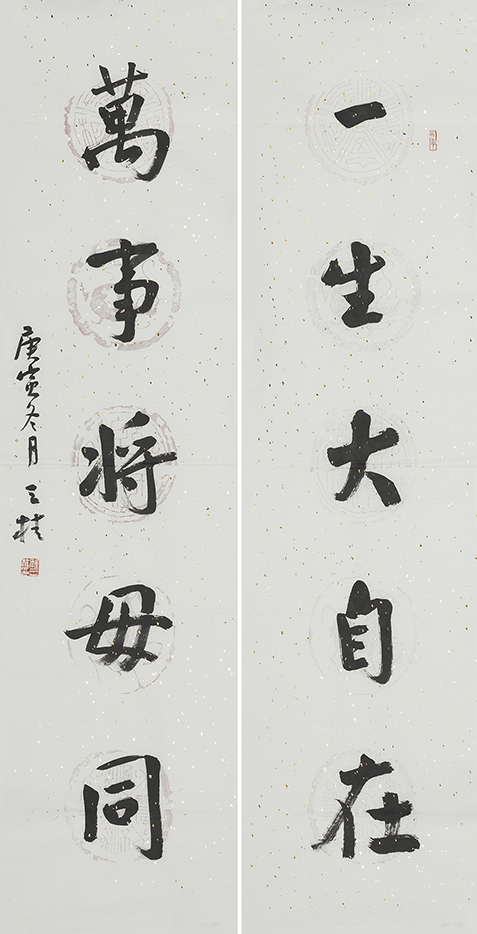 一生大自在
萬事将毋同
庚寅冬月